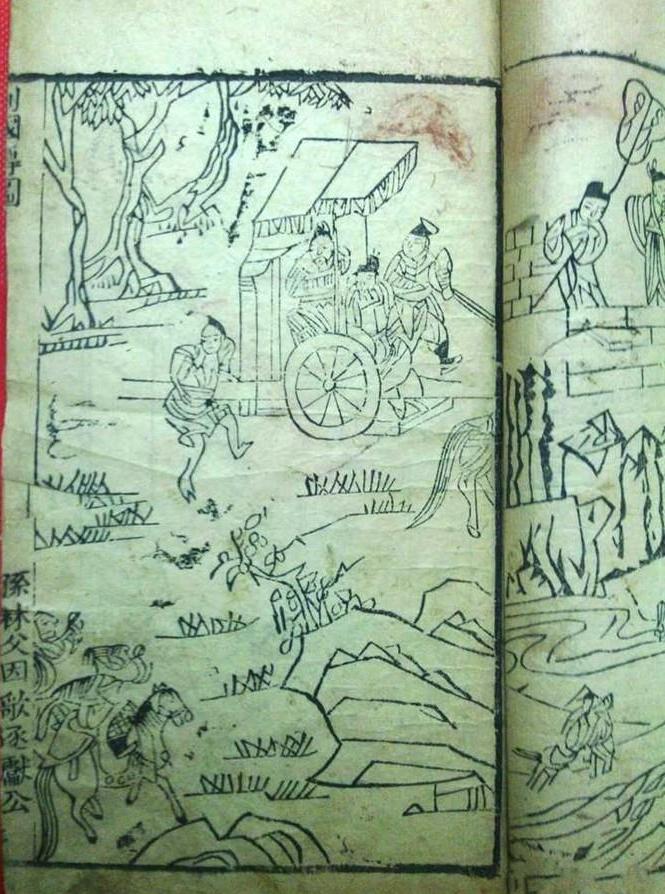 列國傳圖
孫林父因歌逐獻公